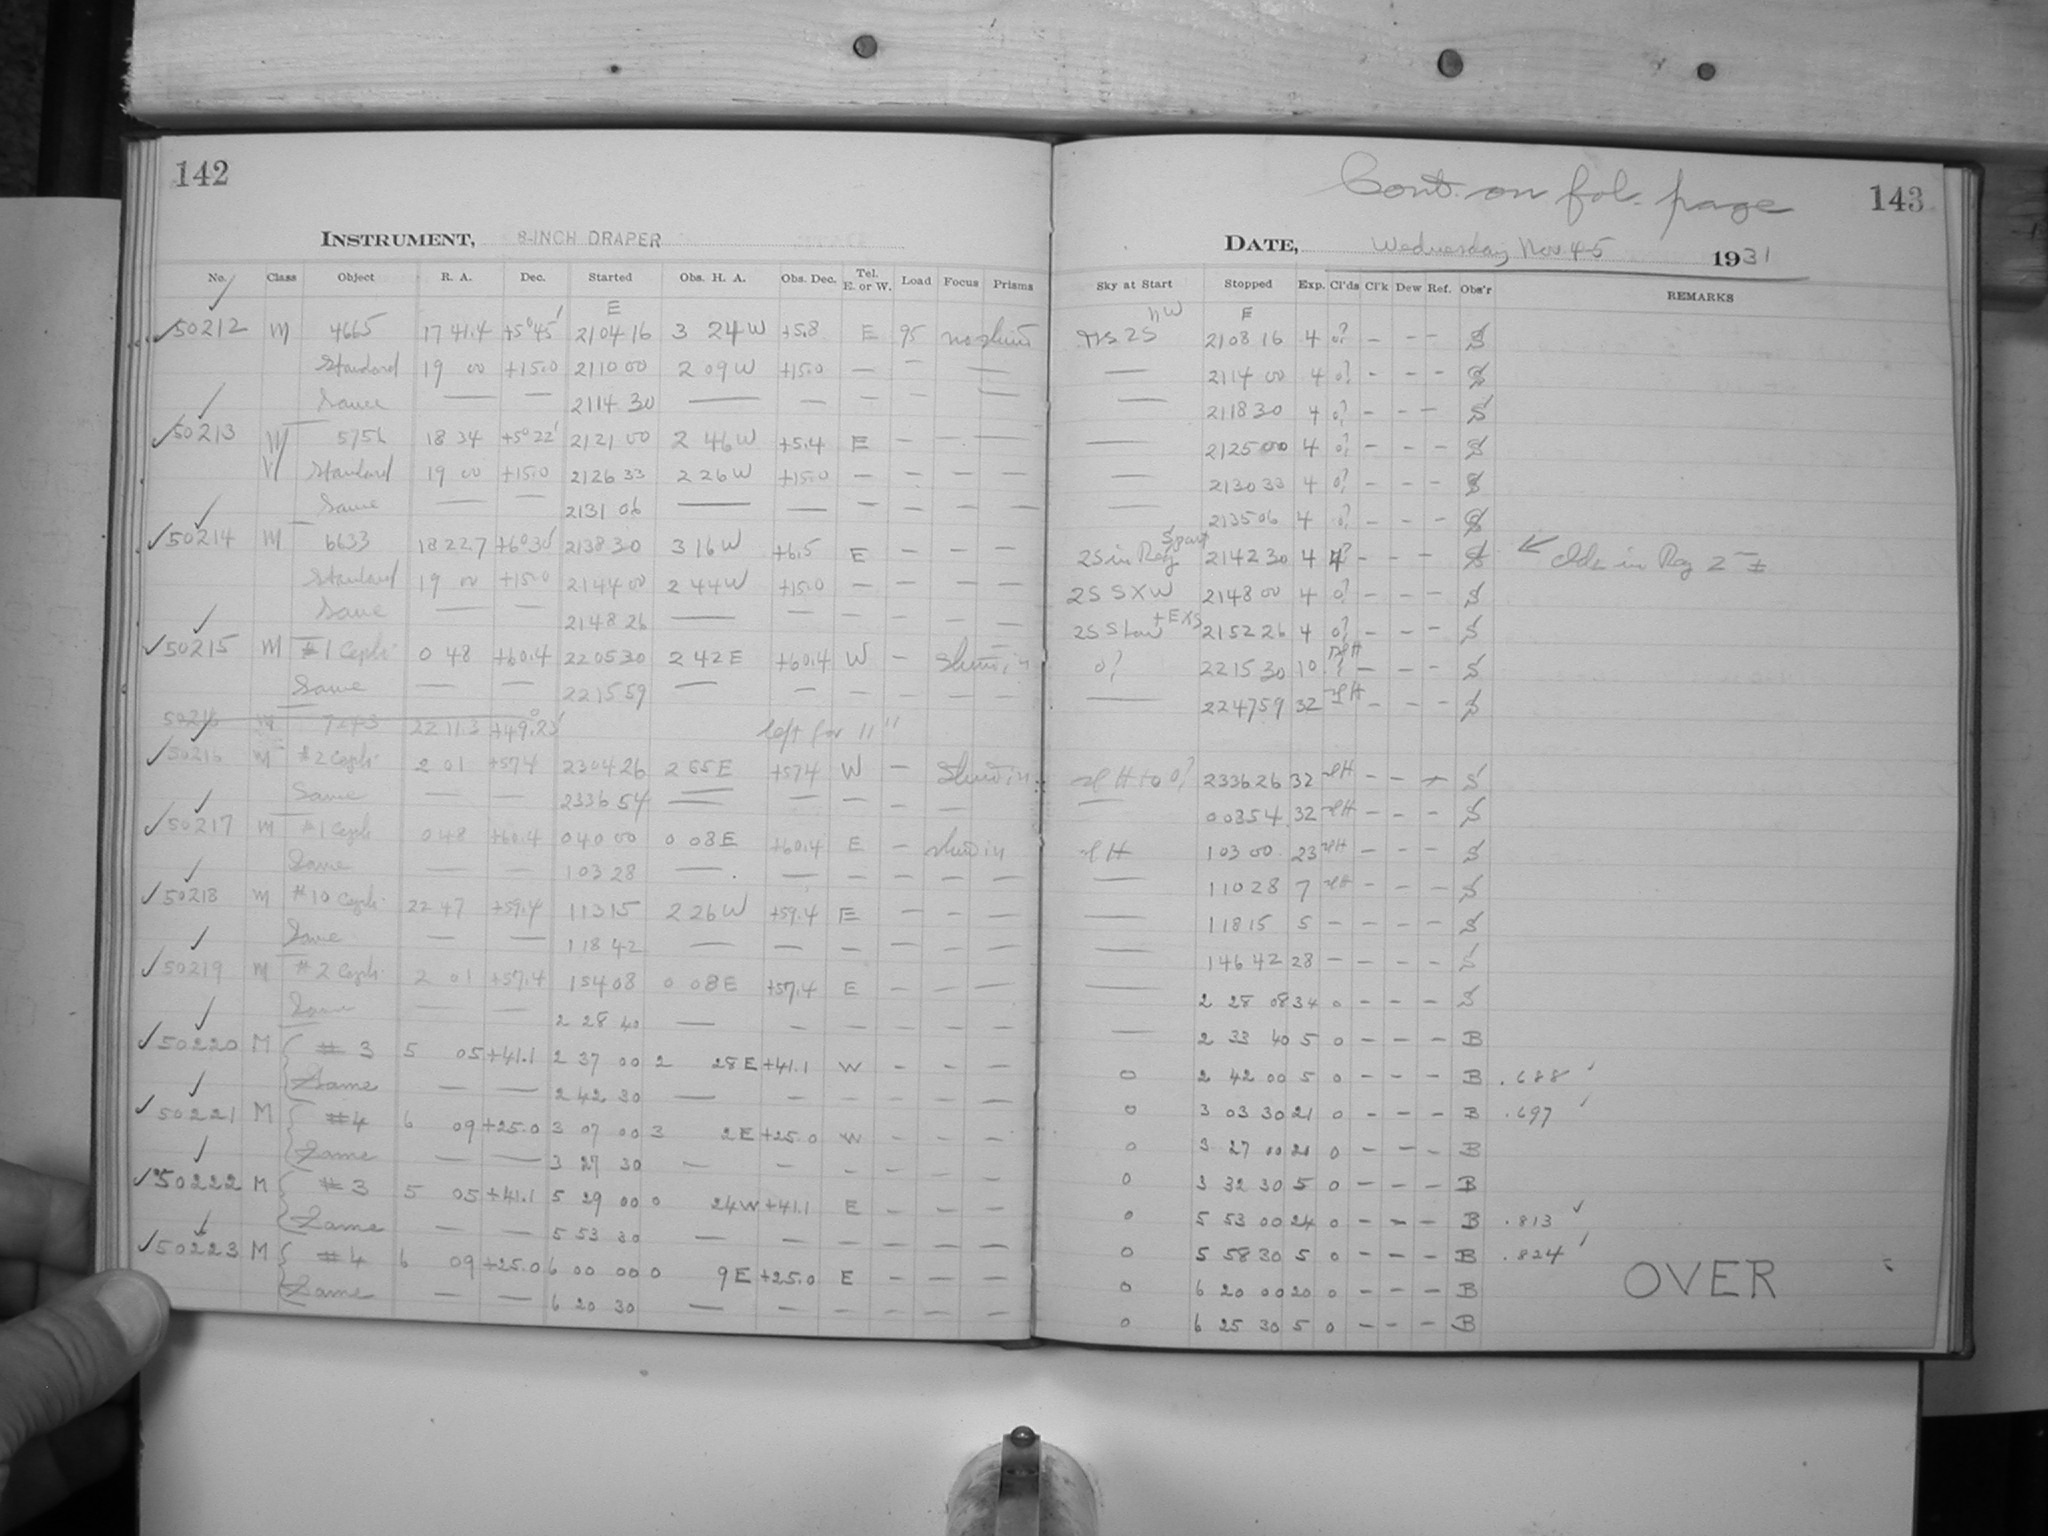 142
INSTRUMENT, 8-INCH DRAPER
No. Class Object R. A. Dec. Started Obs. H. A. Obs. Dec. Tel. E. or W. Load Focus Prisms
E
50212 M 4665 17 41.4 +5°45' 21 04 16 3 24W +5.8 E 95
Standard 19 00 +15.0 21 10 00 2 09W +15.0 — — —
Same — — 21 14 30 — — — — —
50213 M 18 34 +5°22' 21 21 00 2 46W +5.4 E — — —
Standard 19 00 +15.0 21 26 33 2 26W +15.0 — — — —
Same — — 21 31 06 — — — — — —
50214 M 6633 18 22.7 +6°30' 21 38 30 3 16W +6.5 E — — —
Standard 19 00 +15.0 21 44 00 2 44W +15.0 — — — —
Same — — 21 48 26 — — — — — —
50215 M #1 Ceph. 0 48 +60.4 22 05 30 2 42E +60.4 W —
Same — — 22 15 59 — — — — — —
50216 M 7243 22 11.3 +49.23' left for 11"
50216 M #2 Ceph. 2 01 +57.4 23 04 26 2 55E +57.4 W —
Same — — 23 36 54 — — — — —
50217 M #1 Ceph. 0 48 +60.4 0 40 00 0 08E +60.4 E —
Same — — 1 03 28 — — — — — —
50218 M #10 Ceph. 22 47 +59.4 1 13 15 2 26W +59.4 E — — —
Same — — 1 18 42 — — — — — —
50219 M #2 Ceph. 2 01 +57.4 1 54 08 0 08E +57.4 E — — —
Same — — 2 28 40 — — — — — —
50220 M #3 5 05 +41.1 2 37 00 2 28E +41.1 W — — —
Same — — 2 42 30 — — — — — —
50221 M #4 6 09 +25.0 3 07 00 3 2E +25.0 W — — —
Same — — 3 27 30 — — — — — —
50222 M #3 5 05 +41.1 5 29 00 0 24W +41.1 E — — —
Same — — 5 53 30 — — — — — —
50223 M #4 6 09 +25.0 6 00 00 0 9E +25.0 E — — —
Same — — 6 20 30 — — — — — —
Cont. on fol. page
143
DATE, Wednesday Nov 4-5 1931
Sky at Start Stopped Exp. Cl'ds Cl'k Dew Ref. Obs'r REMARKS
NW E
2S 21 08 16 4 0? — — — S
— 21 14 00 4 0? — — — S
— 21 18 30 4 0? — — — S
— 21 25 00 4 0? — — — S
— 21 30 33 4 0? — — — S
— 21 35 06 4 0? — — — S
2S in Reg 21 42 30 4 — — — S
2S S X W 21 48 00 4 0? — — — S
2S S low 21 52 26 4 0? — — — S
0? 22 15 30 10 — — — S
— 22 47 59 32 — — — S
23 36 26 32 — — — S
— 0 03 54 32 — — — S
1 03 00 23 — — — S
— 1 10 28 7 — — — S
— 1 18 15 5 — — — — S
— 1 46 42 28 — — — — S
— 2 28 08 34 0 — — — S
— 2 33 40 5 0 — — — B
0 2 42 00 5 0 — — — B .688
0 3 03 30 21 0 — — — B .697
0 3 27 00 20 0 — — — B
0 3 32 30 5 0 — — — B
0 5 53 00 24 0 — — — B .813
0 5 58 30 5 0 — — — B .824
0 6 20 00 20 0 — — — B
0 6 25 30 5 0 — — — B
OVER